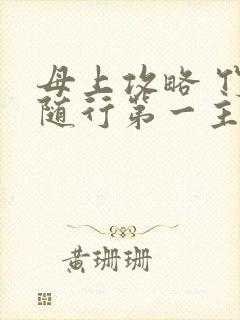 母上攻略
随行第一主
黄珊珊